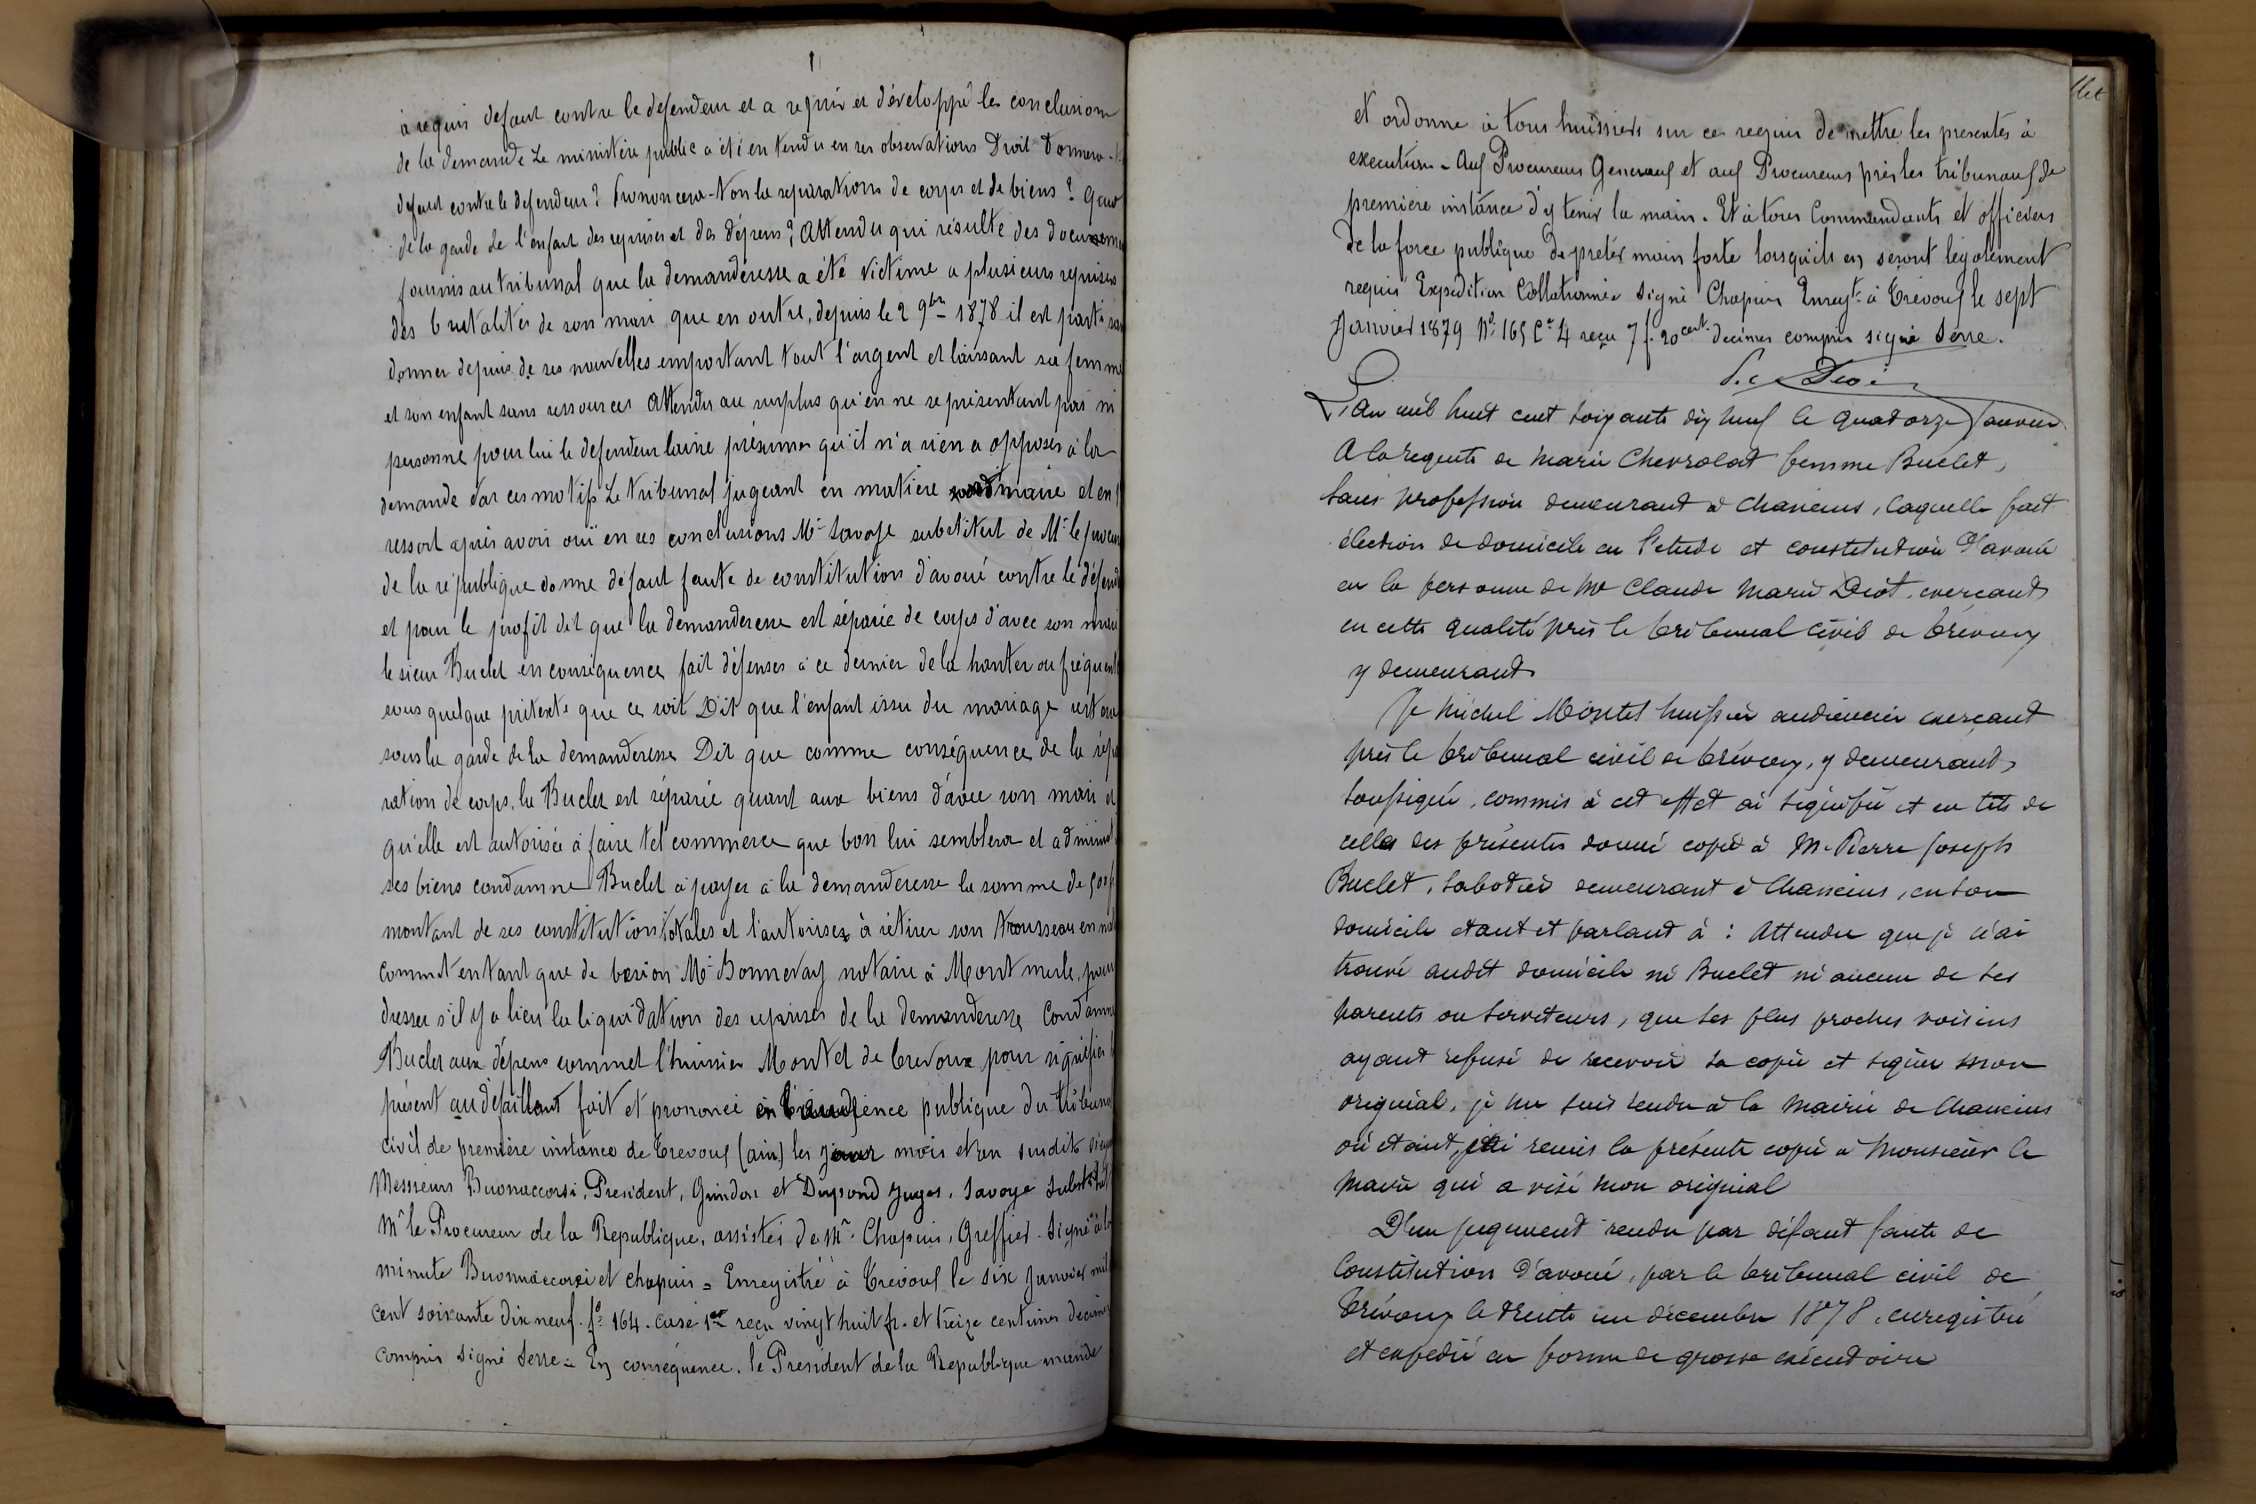 a requis defaut contre le defendeur et a repris et développé les conclusions
de la demande Le ministère public a été entendu en ses observations Droit Donnera-t-
defaut contre le defendeur? Prononcera-t-on la separations de corps et de biens? Quid
de la garde de l'enfant des reprises et des dépens? Attendu qui résulte des docum
fournis au tribunal que la demanderesse a été victime a plusieurs reprises
des brutalités de son mari que en outre, depuis le 2 9bre 1878 il est parti
donner depuis de ses nouvelles emportant tout l'argent et laissant sa femme
et son enfant sans ressources Attendu au surplus qu'en ne se présentant pas ni
personne pour lui le defendeur laisse présumer qu'il n'a rien a opposer à la
demande Par ces motifs Le tribunal jugeant en matière et en
ressort après avoir ouï en ses conclusions Mr Savoye substitut de Mr le procur
de la république donne défaut faute de constitution d'avoué contre le défend
et pour le profit dit que la demanderesse est séparée de corps d'avec son mari
le sieur Buclet en consequence fait défenses à ce dernier de la hanter ou fréquent
sous quelque pretexte que ce soit Dit que l'enfant issu du mariage
sous la garde de la demanderesse Dit que comme conséquence de la sépa
ration de corps, la Buclet est séparée quant aux biens d'avec son mari et
qu'elle est autorisée à faire tel commerce que bon lui semblera et administ
ses biens condamne Buclet a payer à la demanderesse la somme de
montant de ses constitutions dotales et l'autorise à rétirer son trousseau en
commet en tant que de besoin Me Bonnevay notaire à Montmerle, pour
dresser s'il y a lieu la liquidation des reprises de la demanderesse Condamne
Buclet aux dépens commet l'huissier Montet de Trevoux pour signifier
présent au défaillant fait et prononcé en l'audience publique du tribuna
civil de première instance de Trevoux (ain) les jour mois et an susdits
Messieurs Buonaccorsi, President, Guindon et Dupond juges, Savoye Substitut
Mr le Procureur de la Republique, assistés de Mr Chapuis, Greffier. Signé à la
minute Buonaccorsi et chapuis = Enregistré à Trevoux le six Janvier mil
cent soixante dix neuf. fo 164. case 1re reçu vingt huit fr. et treize centimes decimes
compris signé Serre = En conséquence, le Président de la République mande
et ordonne à tous huissiers sur ce requis de mettre les presentes à
execution - Aux Procureurs Generaux et aux Procureurs près les tribunaux de
premiere instance d'y tenir la main. Et à tous Commandants et officiers
de la force publique de preter main forte lorsqu'ils en seront légalement
requis Expedition Collationnée signé Chapuis Enregt à Trévoux le sept
Janvier 1879 No 165 Ce 4 reçu 7 f. 20 cent. decimes compris signé Serre.
L'an mil huit cent soixante dix neuf le quatorze Janvier
A la requete de Marie Chevrolat femme Buclet,
sans profession demeurant à Chaneins, laquelle fait
élection de domicile en l'etude et constitution d'avoué
en la personne de Me Claude Marie Diot, exercant
en cette qualité près le tribunal civil de Trévoux
y demeurant
Je Michel Montet huissier audiencier exerçant
près le tribunal civil de Trévoux, y demeurant,
soussigné, commis à cet effet ai signifié et en tête de
celles des présentes donné copie à M. Pierre Joseph
Buclet, sabotier demeurant à Chaneins, en son
domicile etant et parlant à : Attendu que je n'ai
trouvé audit domicile ni Buclet ni aucun de ses
parents ou serviteurs, que ses plus proches voisins
ayant refusé de recevoir sa copie et signer mon
original, je me suis rendu à la Mairie de Chaneins
où etant, j'ai remis la présente copie à Monsieur le
Maire qui a visé mon original
D'un jugement rendu par défaut faute de
Constitution d'avoué, par le tribunal civil de
Trévoux le trente un décembre 1878, enregistré
et expédié en forme de grosse exécutoire